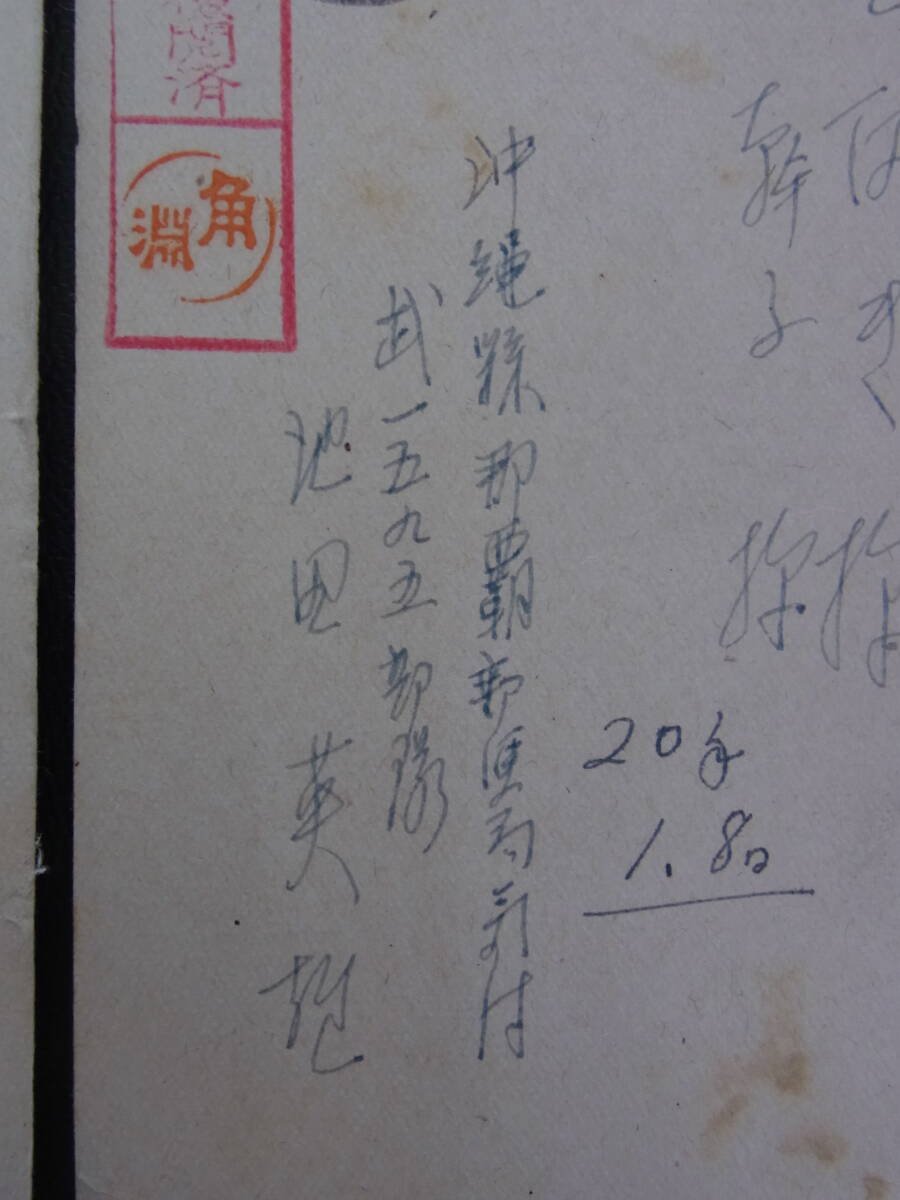 幸子 様
20年
1.8日
沖縄縣那覇郵便局氣付
武一五九五部隊
池田英雄
閲済
角淵